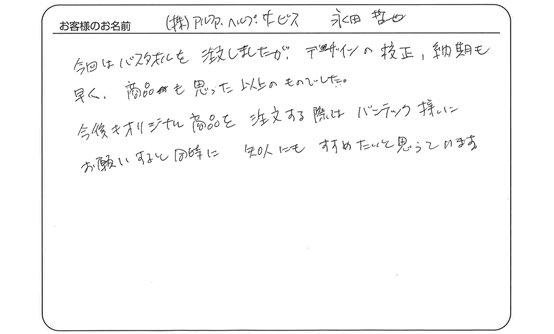 お客様のお名前 (株)アルファ・ヘルプ・サービス 永田 哲也
今回はバスタオルを注文しましたが、デザインの校正、納期も
早く、商品も思った以上のものでした。
今後もオリジナル商品を注文する際はバンテック様に
お願いすると同時に 知人にもすすめたいと思っています